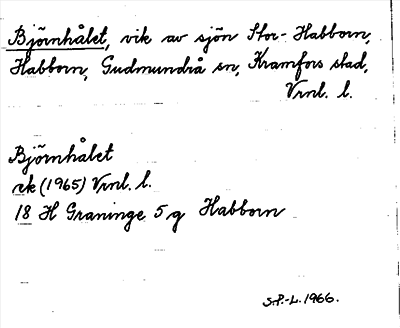 Björnhålet, vik av sjön Stor-Habborn,
Habborn, Gudmundrå sn, Kramfors stad,
Vrnl. l.
Björnhålet
rk (1965) Vrnl. l.
18 H Graninge 5 g Habborn
S.P.-L. 1966.